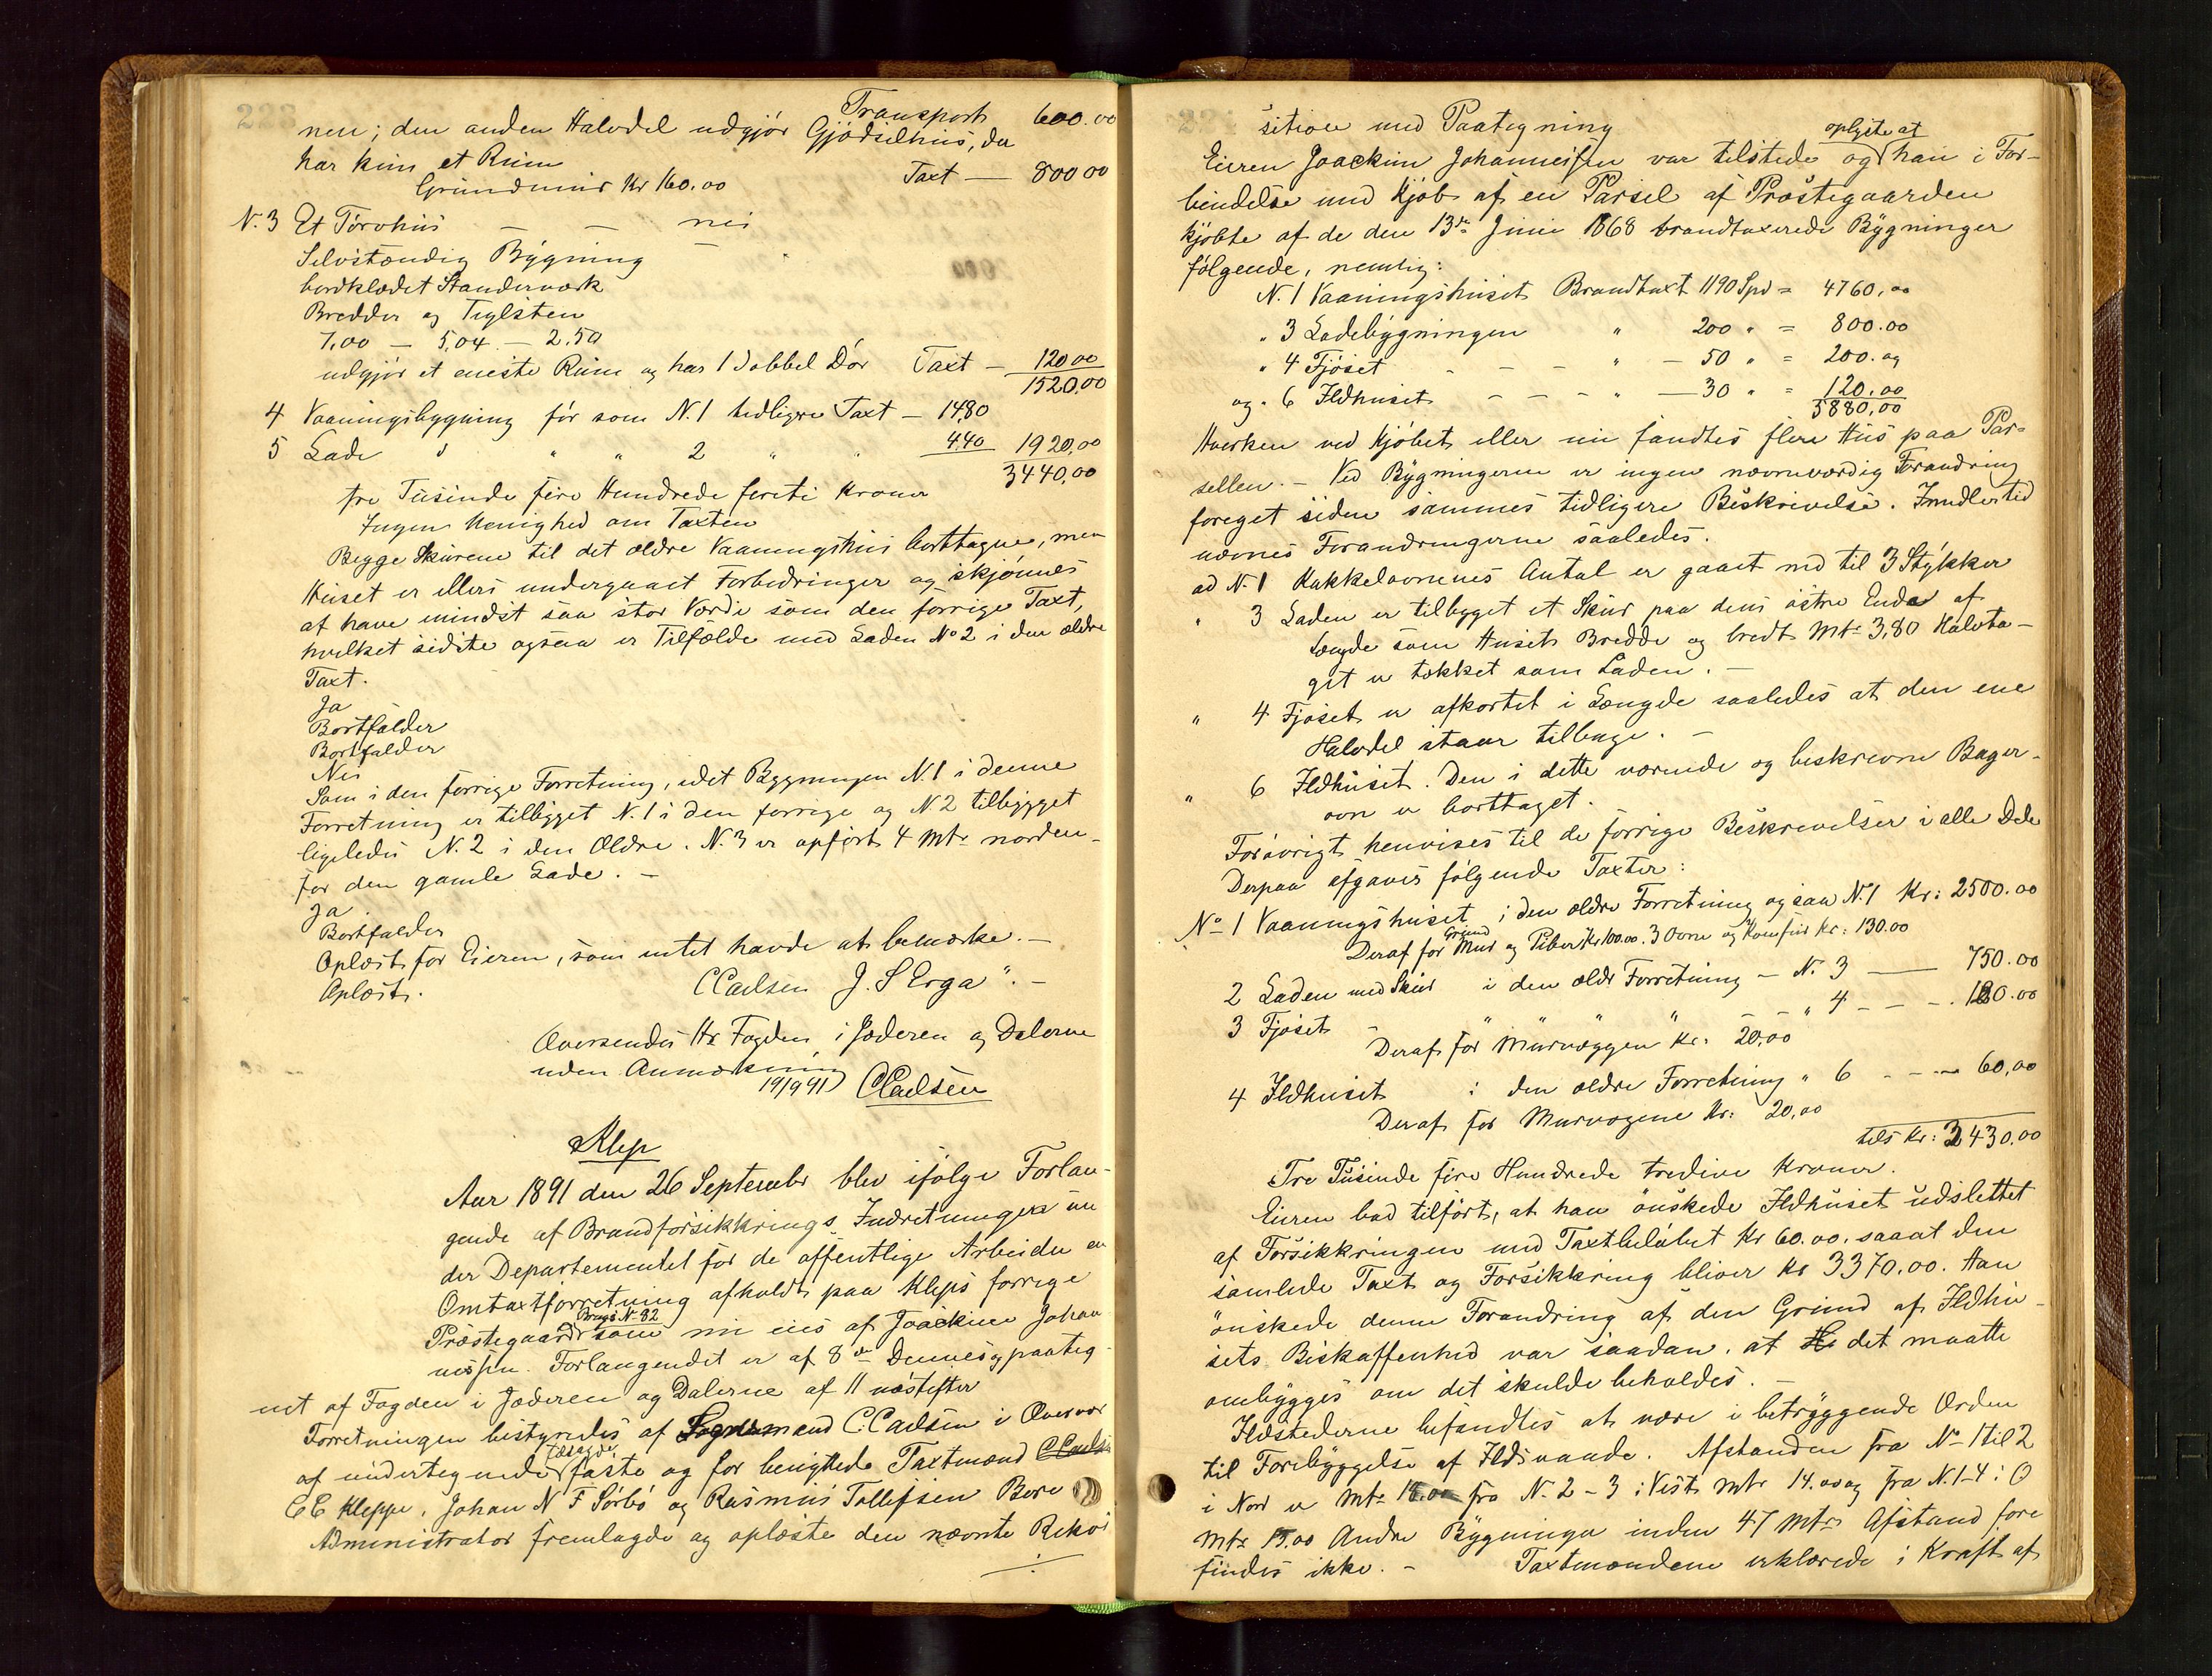 Transport 600.00
nen; den anden Halvdel udgjør Gjødselhus, der
har kun et Rum
Grundmur Kr 160.00 Taxt — 800 00
N. 3 Et Torvhus — — nei
Selvstændig Bygning —
bordklædet Standerværk
Bredder og Teglsten
7.00 — 5.04 — 2.50
udgjør et eneste Rum og har 1 dobbel Dør Taxt — 120 00
1520.00
4 Vaaningsbygning før som N. 1 tidligere Taxt — 1480
5 Lade " " " 2 " " 440 1920,00
3440,00
tre Tusinde fire Hundrede forti Kroner
Ingen Uenighed om Taxten
Begge Skurene til det ældre Vaaningshus borttagne, men
Huset er ellers undergaaet Forbedringer og skjønnes
at have mindst saa stor Værdi som den forrige Taxt,
hvilket sidste ogsaa er Tilfælde med Laden No 2 i den ældre
Taxt.
Ja
Bortfalder
Bortfalder
Nei
Som i den forrige Forretning, idet Bygningen N. 1 i denne
Forretning er tilbygget N. 1 i den forrige og N 2 tilbygget
ligeledes N. 2 i den Ældre. N. 3 er opført 4 Mtr norden-
for den gamle Lade. —
Ja
Bortfalder
Oplæst for Eieren, som intet havde at bemærke. —
Oplæst. CCarlsen J. S Erga ". —
Oversendes Hr Fogden i Jæderen og Dalerne
uden Anmærkning
19/9 91 CCarlsen
Klep
Aar 1891 den 26 September blev ifølge Forlan-
gende af Brandforsikkrings Indretningen un
der Departementet for de offentlige Arbeider en
Omtaxtforretning afholdt paa Kleps forrige
Brugs No 32
Præstegaard som nu eies af Joackim Johan
nessen. Forlangendet er af 8de Dennes og paateg-
net af Fogden i Jæderen og Dalerne af 11 næstefter
Forretningen bestyredes af Lensmand C. Carlsen i Overvær
edsagde
af undertegnede faste og for benyttede Taxtmænd C Carlsen
E E Kleppe, Johan N F Sørbø og Rasmus Tollefsen Bore
Administrator fremlagde og oplæste den nævnte Rekvi
./.
sition med Paategning
oplyste at
Eieren Joackim Johannessen var tilstede og han i For-
bindelse med Kjøb af en Parsel af Præstegaarden
kjøbte af de den 13de Juni 1868 brandtaxerede Bygninger
følgende, nemlig:
N. 1 Vaaningshuset Brandtaxt 1190 Spd = 4760,00
" 3 Ladebygningen " 200 " = 800.00
" 4 Fjøset - - - " — 50 " = 200. og
og " 6 Ildhuset - - - " — 30 " = 120.00
5880,00
Hverken ved Kjøbet eller nu fandtes flere Hus paa Par-
sellen. — Ved Bygningerne er ingen nævneværdig Forandring
foreget siden sammes tidligere Beskrivelse. Imidlertid
nævnes Forandringerne saaledes.
ad N. 1 Kakkelovnenes Antal er gaaet ned til 3 Stykker
" 3 Laden er tilbygget et Skur paa dens østre Ende af
Længde som Husets Bredde og bredt Mtr 3,80 Halvta-
get er tækket som Laden. —
" 4 Fjøset er afkortet i Længde saaledes at den ene
Halvdel staar tilbage. —
" 6 Ildhuset. Den i dette værende og beskrevne Bager-
ovn er borttaget.
Forøvrigt henvises til de forrige Beskrivelser i alle Dele
Derpaa afgaves følgende Taxter:
No 1 Vaaningshuset i den ældre Forretning ogsaa N. 1 Kr: 2500.00
Grund
Deraf for Mur og Piber Kr 100.00. 3 Ovne og Komfur Kr: 130.00
2 Laden med Skur i den ældre Forretning — N. 3 — 750.00
3 Fjøset " " " " " 4 - - - 120.00
Deraf for Murvæggen Kr. 20,00
4 Ildhuset i den ældre Forretning " 6 - - - 60,00
Deraf for Murvægene Kr: 20,00
tils Kr: 3430.00
Tre Tusinde fire Hundrede tredive Kroner.
Eieren bad tilført, at han ønskede Ildhuset udslettet
af Forsikkringen med Taxtbeløbet Kr 60.00. saaat den
samlede Taxt og Forsikkring bliver Kr 3370.00. Han
ønskede denne Forandring af den Grund af Ildhu-
sets Beskaffenhed var saadan, at det maatte
ombygges om det skulde beholdes. —
Ildstederne befandtes at være i betryggende Orden
til Forebyggelse af Ildsvaade. Afstanden fra No 1 til 2
i Nord er Mtr 18.00 fra N. 2 - 3 i Vest Mtr 14.00 og fra N. 1-4 i O
Mtr 15.00 Andre Bygninger inden 47 Mtrs Afstand fore
findes ikke. — Taxtmændene erklærede i Kraft af